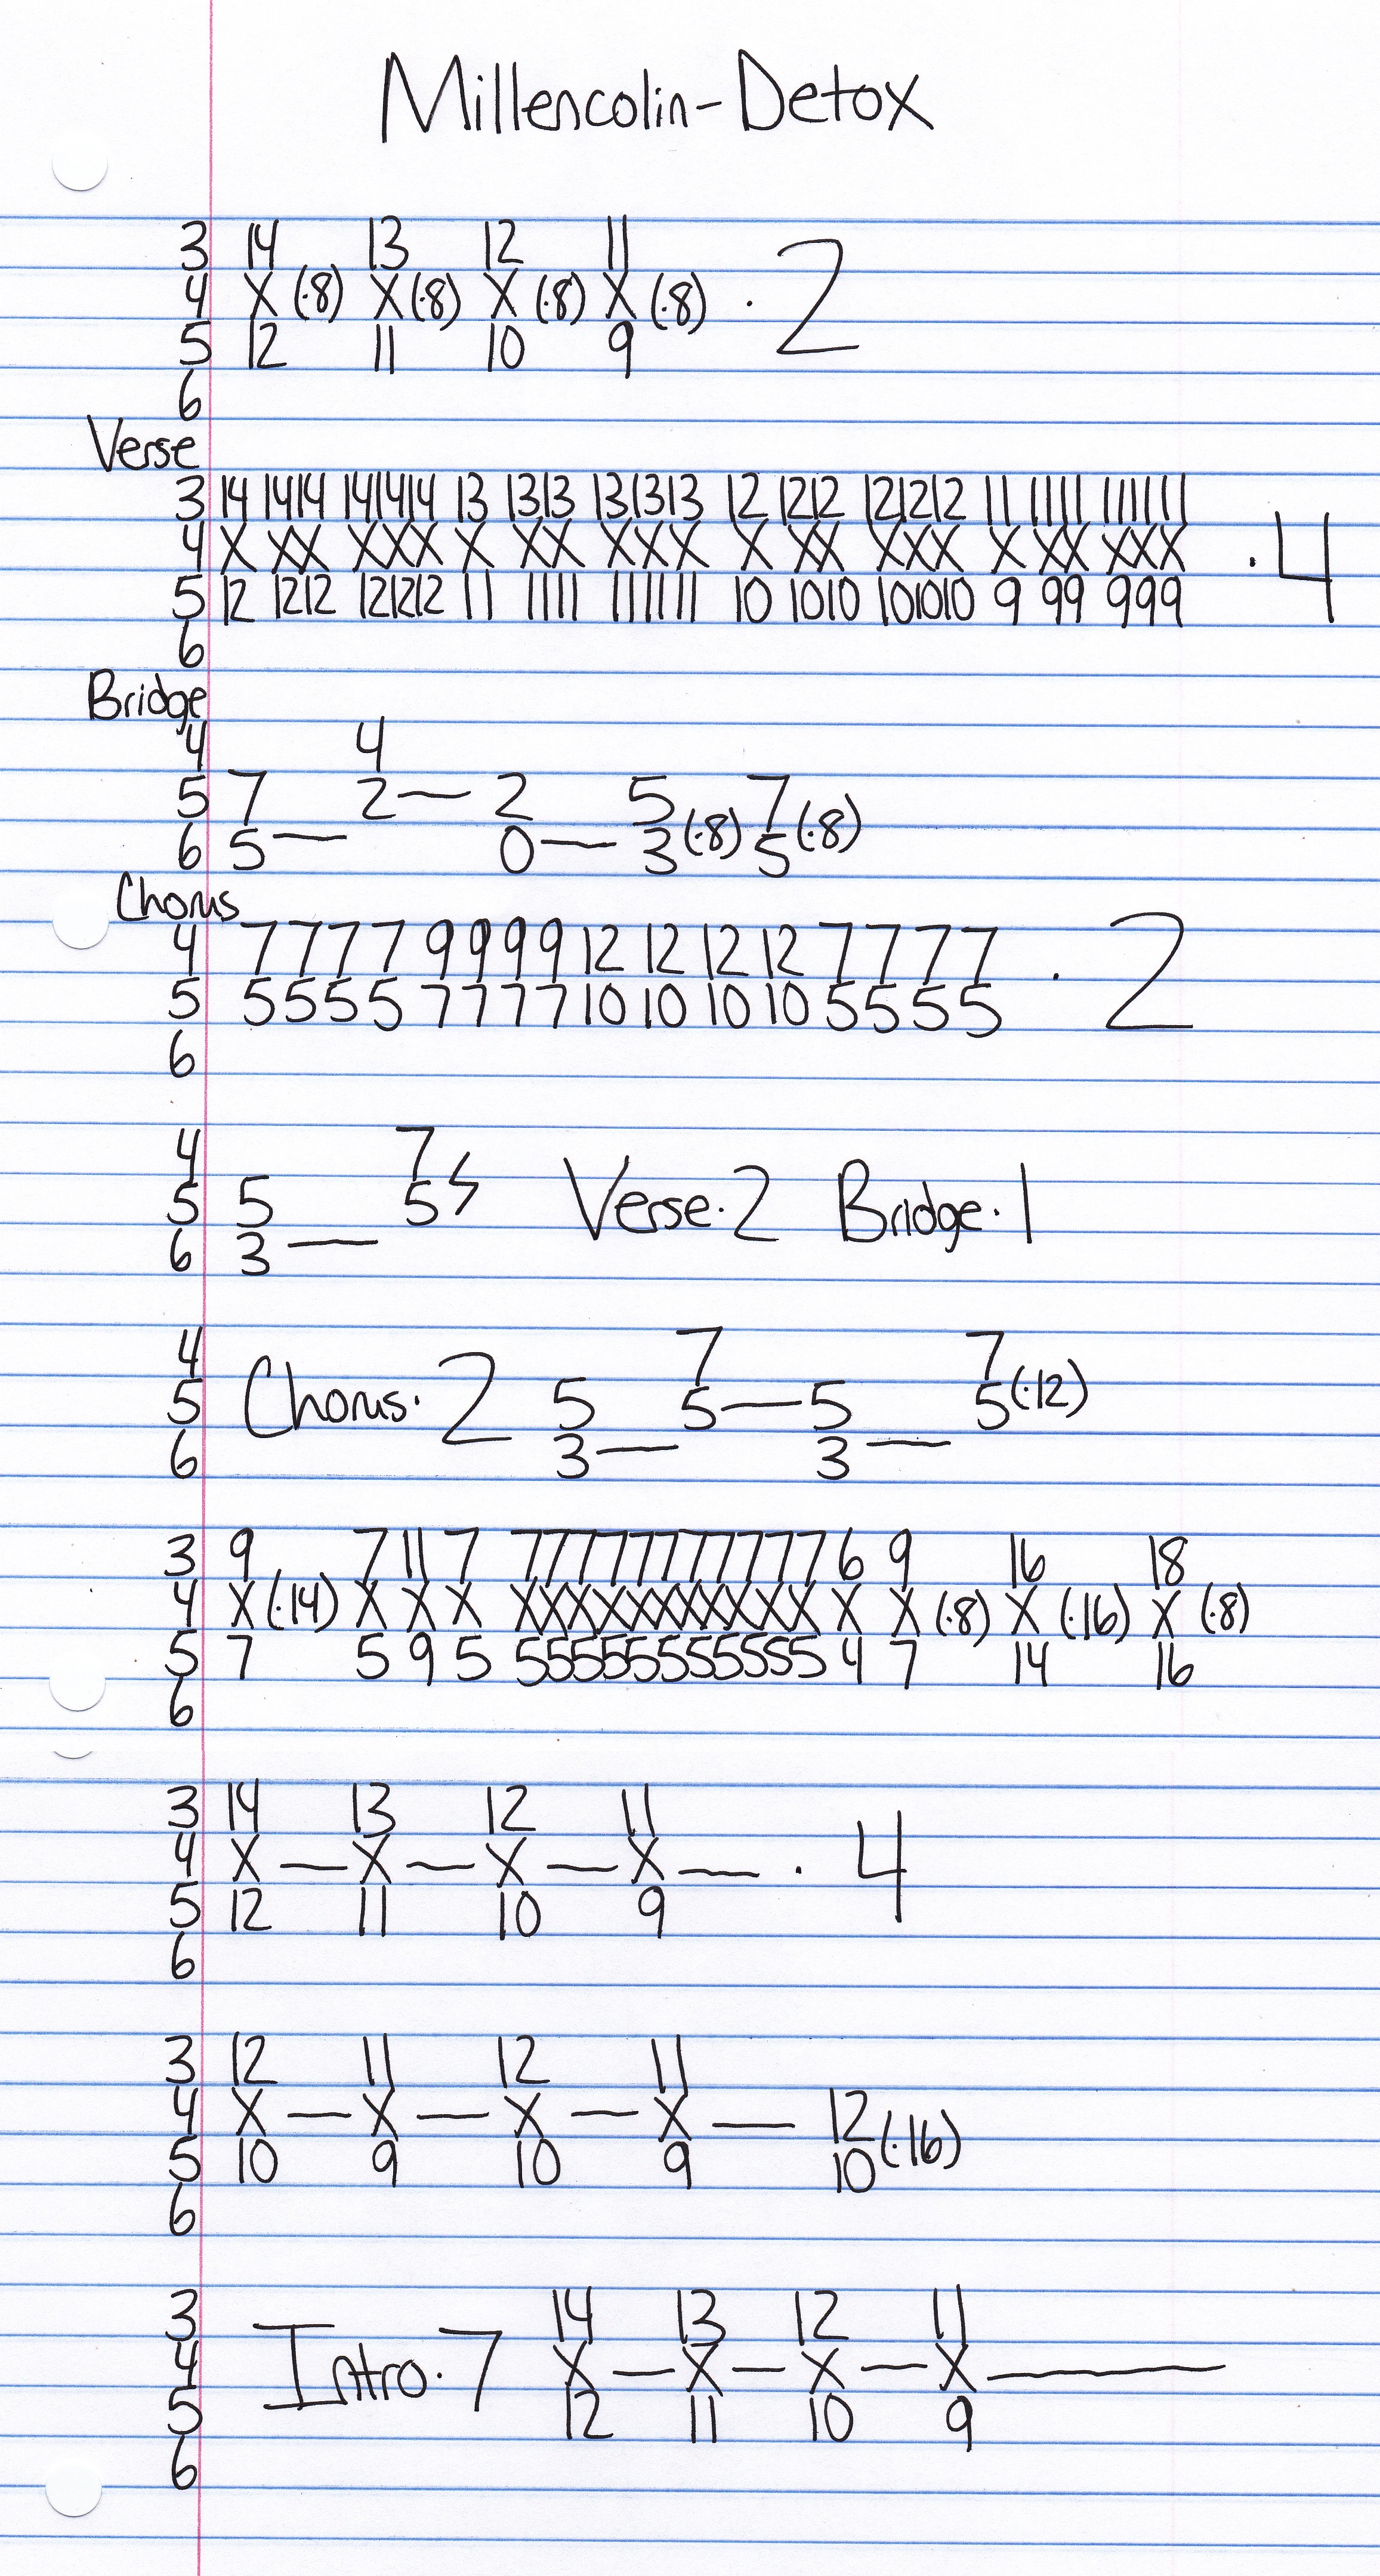 Millencolin-Detox
3 14 13 12 11
4 X (·8) X (·8) X (·8) X (·8) · 2
5 12 11 10 9
6
Verse
3 14 1414 141414 13 1313 131313 12 1212 121212 11 1111 111111
4 X XX XXX X XX XXX X XX XXX X XX XXX · 4
5 12 1212 121212 11 1111 111111 10 1010 101010 9 99 999
6
Bridge
4 4
5 7 2— 2 5 7
6 5— 0— 3(·8) 5(·8)
Chorus
4 7 7 7 7 9 9 9 9 12 12 12 12 7 7 7 7 · 2
5 5 5 5 5 7 7 7 7 10 10 10 10 5 5 5 5
6
4 7
5 5 5 Verse·2 Bridge·1
6 3—
4 7 7
5 Chorus·2 5 5—5 5(·12)
6 3— 3—
3 9 7 11 7 77777777777 6 9 16 18
4 X (·14) X X X XXXXXXXXXXX X X (·8) X (·16) X (·8)
5 7 5 9 5 55555555555 4 7 14 16
6
3 14 13 12 11
4 X — X — X — X — · 4
5 12 11 10 9
6
3 12 11 12 11
4 X — X — X — X — 12
5 10 9 10 9 10(·16)
6
3 14 13 12 11
4 Intro·7 X — X — X — X —
5 12 11 10 9
6